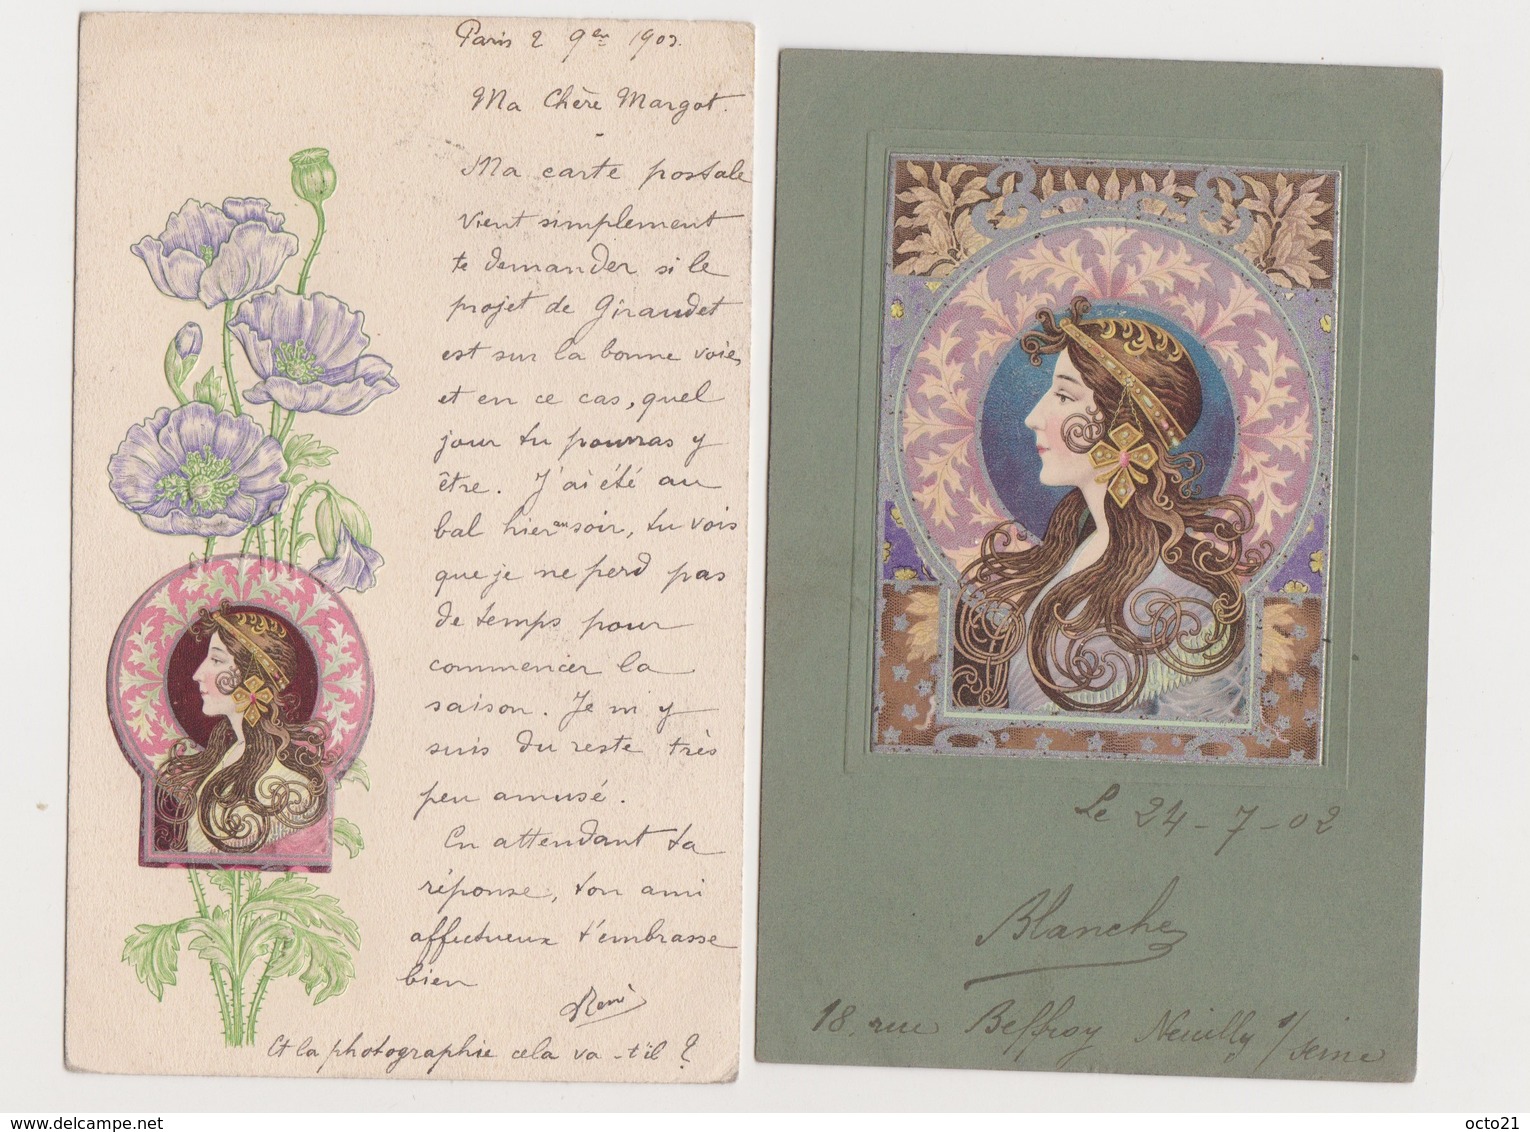 Paris 2 9bre 1903.
Ma Chère Margot.
Ma carte postale
vient simplement
te demander si le
projet de Giraudet
est sur la bonne voie,
et en ce cas, quel
jour tu pourras y
être. J'ai été au
bal hier au soir, tu vois
que je ne perd pas
de temps pour
commencer la
saison. Je m'y
suis du reste très
peu amusé.
En attendant ta
réponse, ton ami
affectueux t'embrasse
bien
René
Et la photographie cela va-t'il ?
Le 24-7-02
Blanche
18, rue Beffroy Neuilly s/ Seine
© delcampe.net
octo21